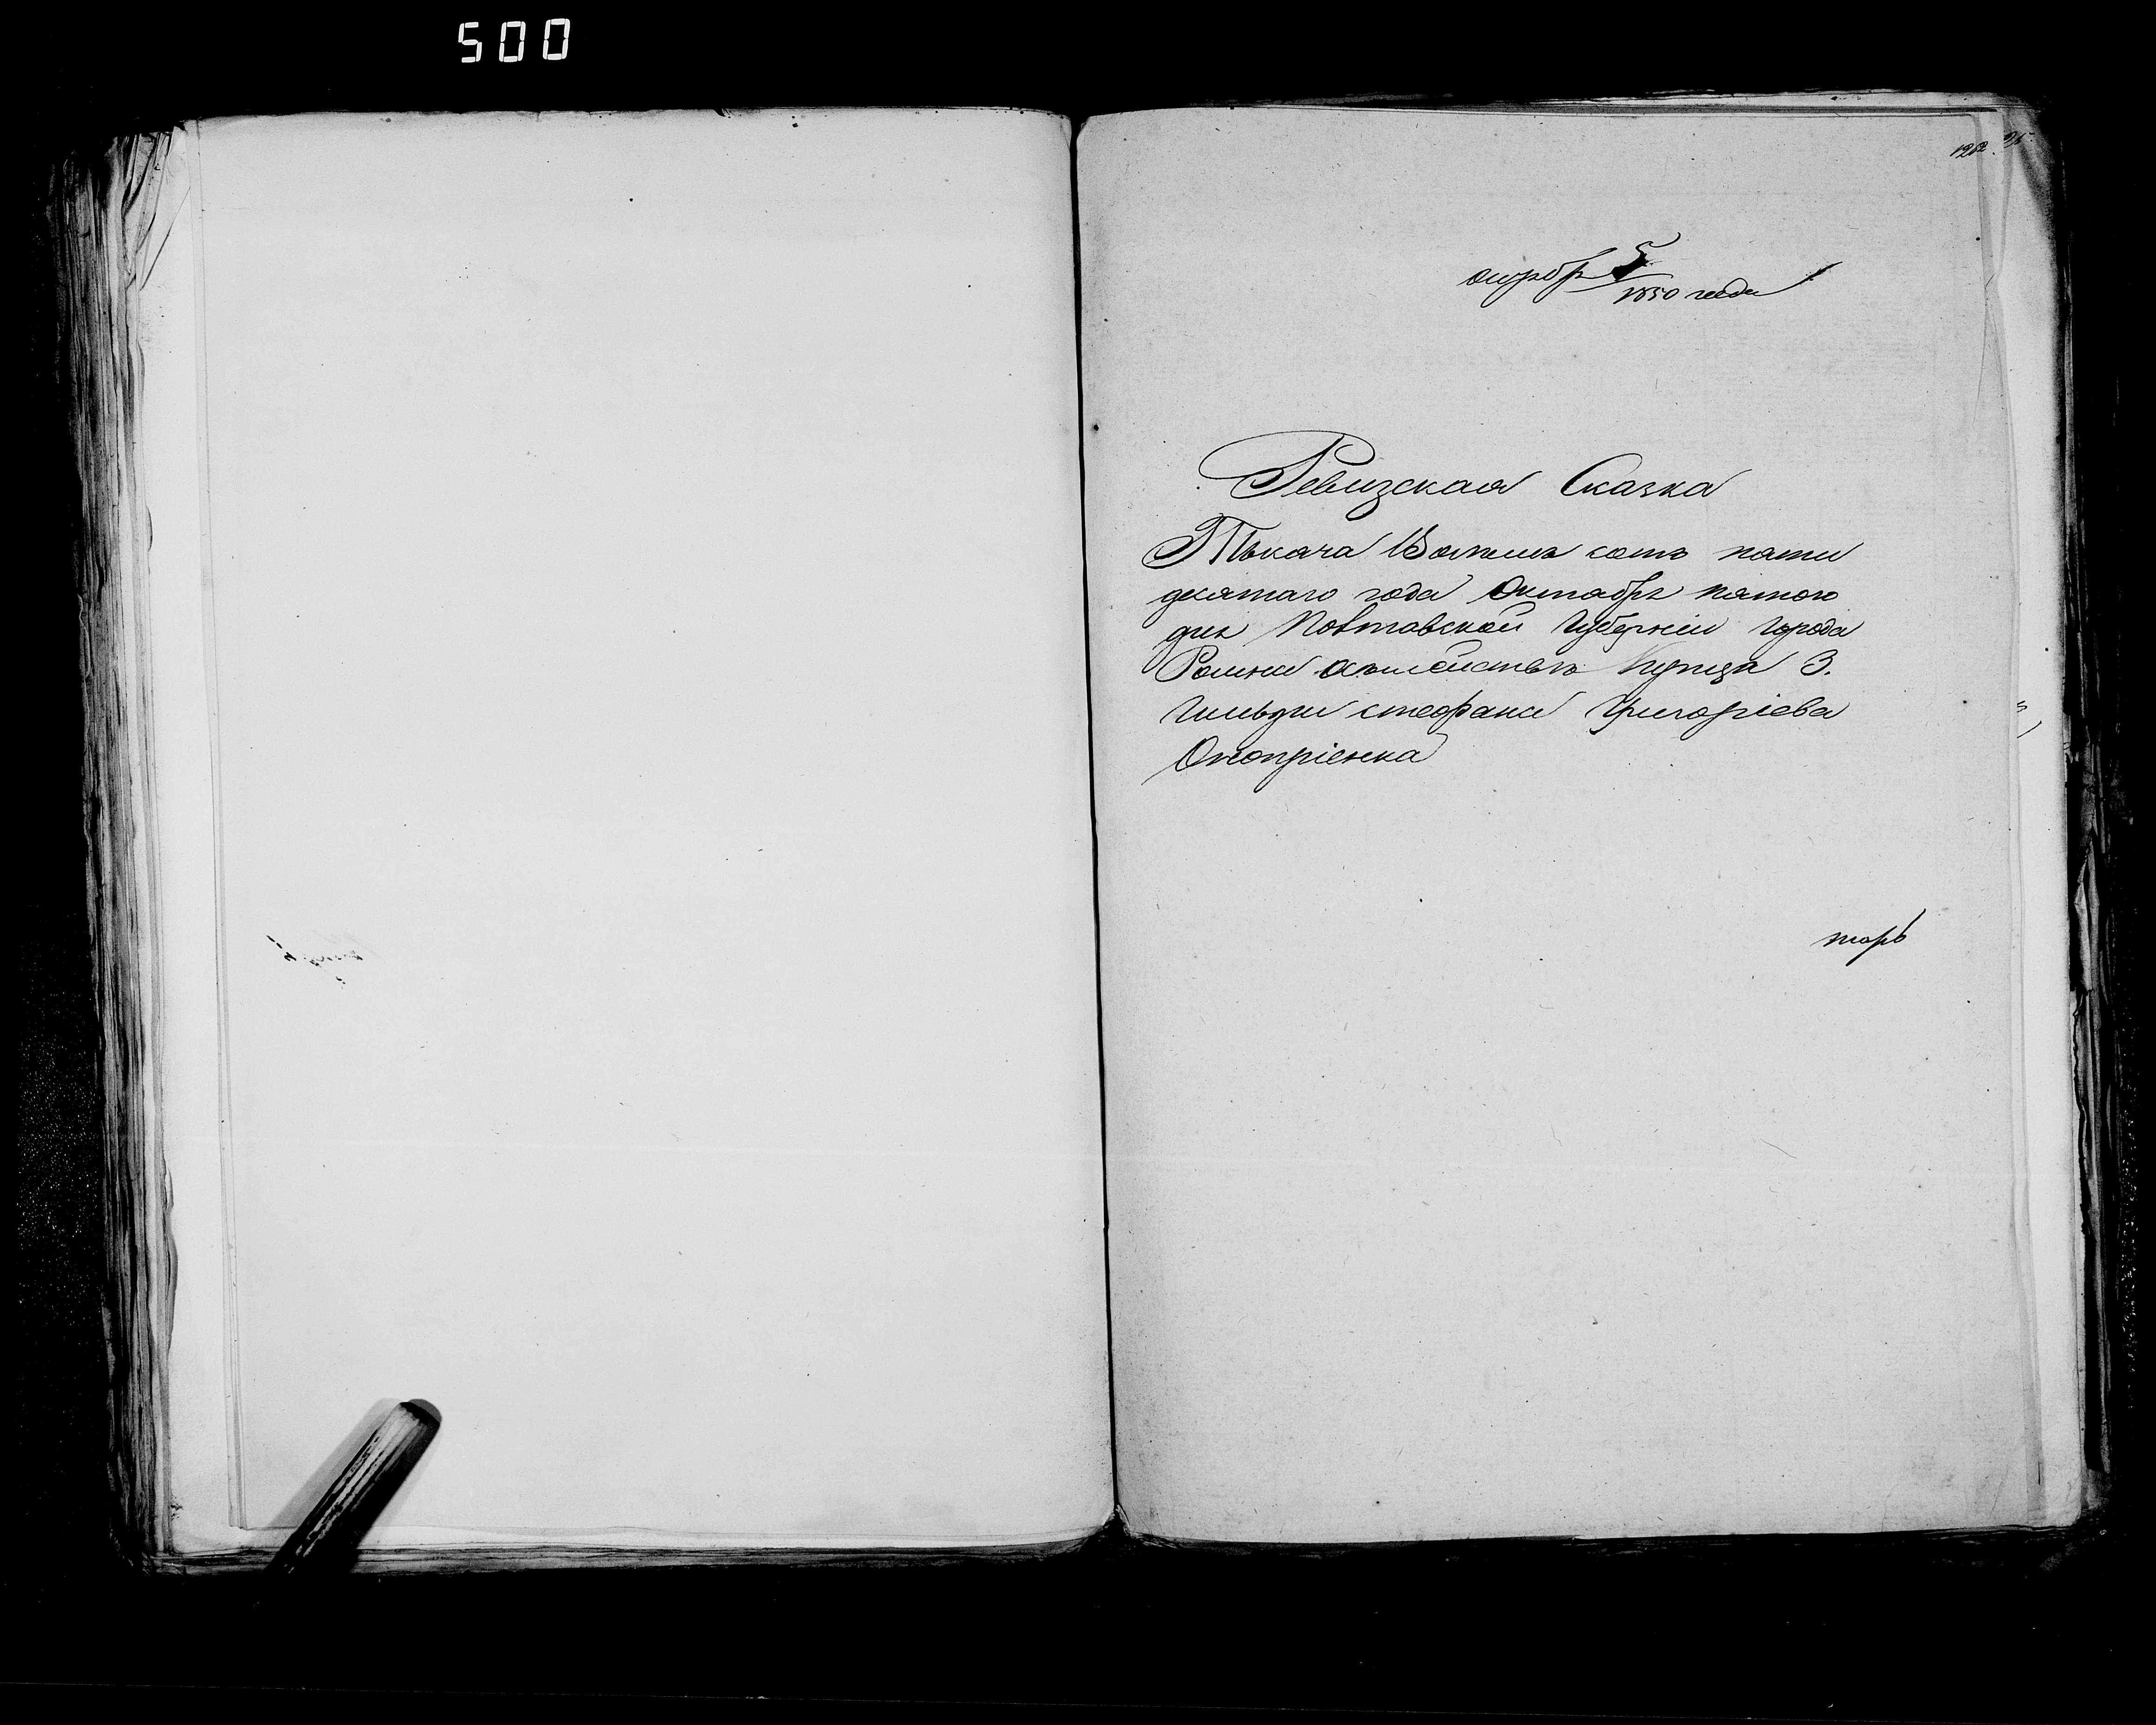 500
1262
октбр 5
1850 года
Ревизская Сказка
Тысяча Восемь сотъ пяти
десятаго года Октября пятого
дня Полтавской Губерніи города
Ромна Купца 3.
Гильдіи стефана Григоріева
Оноприенка
торъ